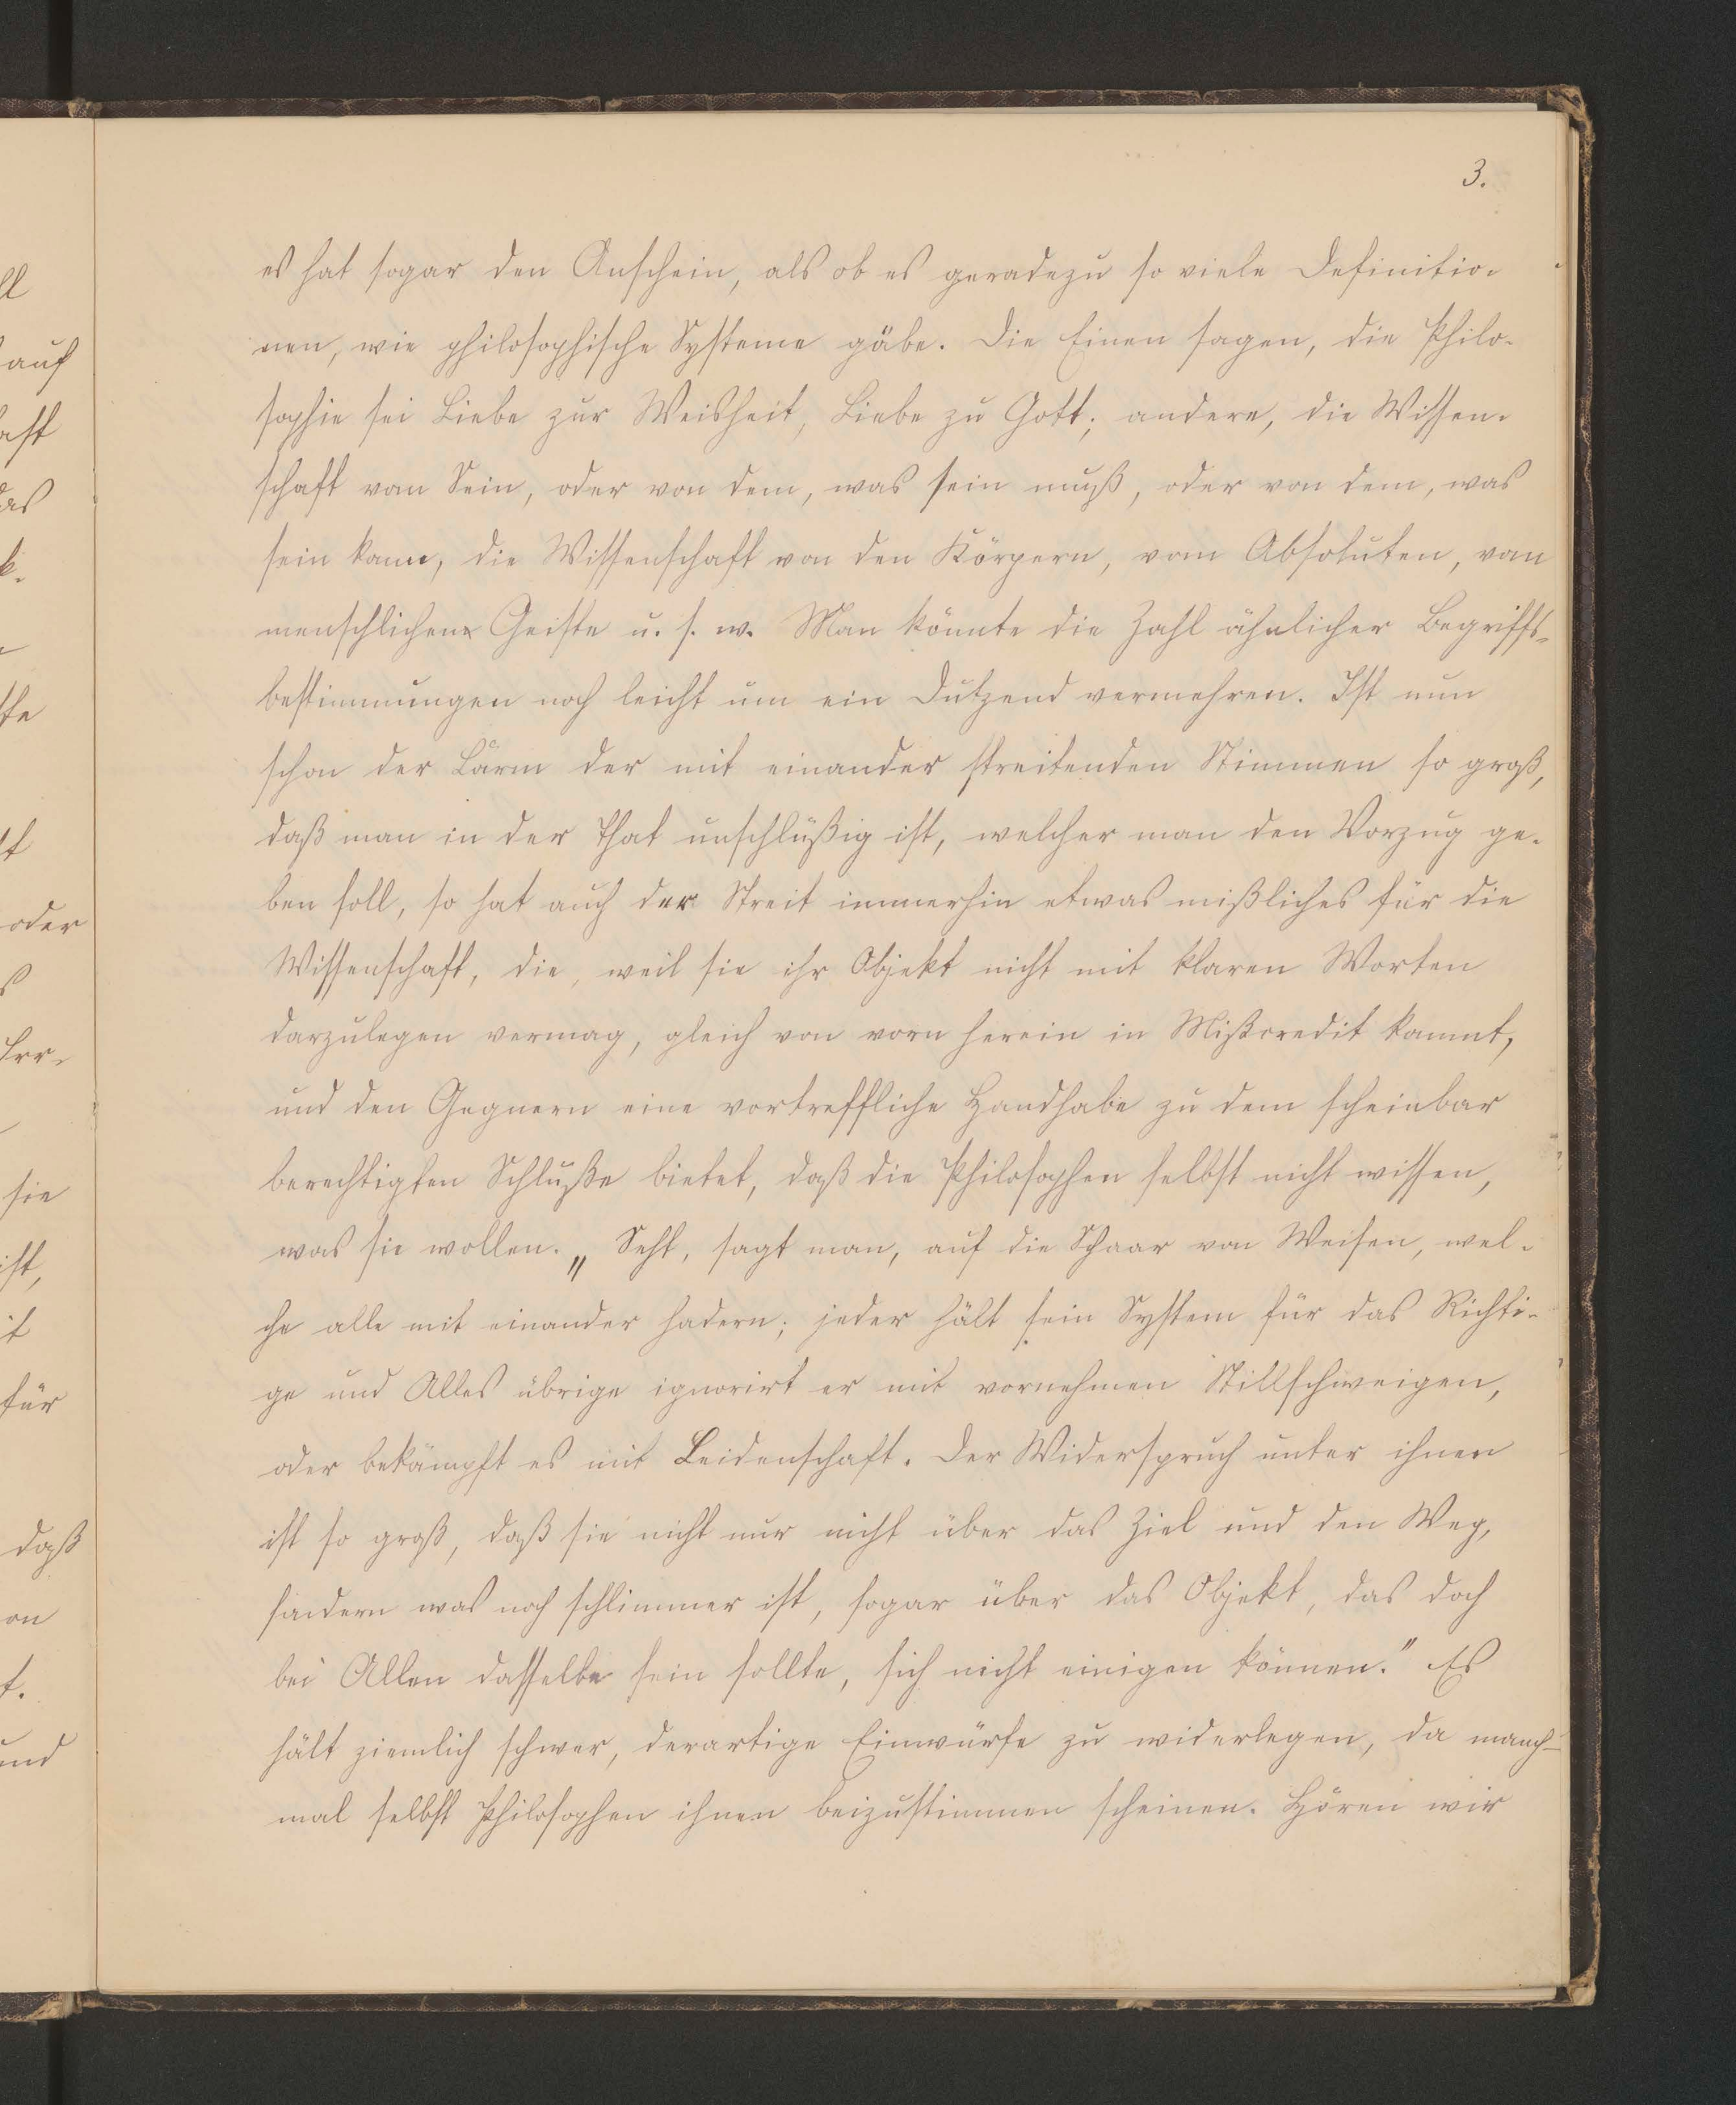 3.
es hat sogar den Anschein, als ob es geradezu so viele Definitio-
nen, wie philosophische Systeme gäbe. Die Einen sagen, die Philo-
sophie sei Liebe zur Weisheit, Liebe zu Gott; andere, die Wissen-
schaft vom Sein, oder von dem, was sein muß, oder von dem, was
sein kann, die Wissenschaft von den Körpern, vom Absoluten, vom
menschlichen Geiste u. s. w. Man könnte die Zahl ähnlicher Begriffs-
bestimmungen noch leicht um ein Dutzend vermehren. Ist nun
schon der Lärm der mit einander streitenden Stimmen so groß,
daß man in der That unschlüßig ist, welcher man den Vorzug ge-
ben soll, so hat auch der Streit immerhin etwas mißliches für die
Wissenschaft, die, weil sie ihr Objekt nicht mit klaren Worten
darzulegen vermag, gleich von vorn herein in Mißcredit kommt,
und den Gegnern eine vortreffliche Handhabe zu dem scheinbar
berechtigten Schluße bietet, daß die Philosophen selbst nicht wissen,
was sie wollen. „Seht, sagt man, auf die Schaar von Weisen, wel-
che alle mit einander hadern; jeder hält sein System für das Richti-
ge und Alles übrige ignorirt er mit vornehmen Stillschweigen,
oder bekämpft es mit Leidenschaft. Der Widerspruch unter ihnen
ist so groß, daß sie nicht nur nicht über das Ziel und den Weg,
sondern was noch schlimmer ist, sogar über das Objekt, das doch
bei Allen dasselbe sein sollte, sich nicht einigen können." Es
hält ziemlich schwer, derartige Einwürfe zu widerlegen, da manch-
mal selbst Philosophen ihnen beizustimmen scheinen. Hören wir
auf
das
oder
sie
ist,
für
daß
und